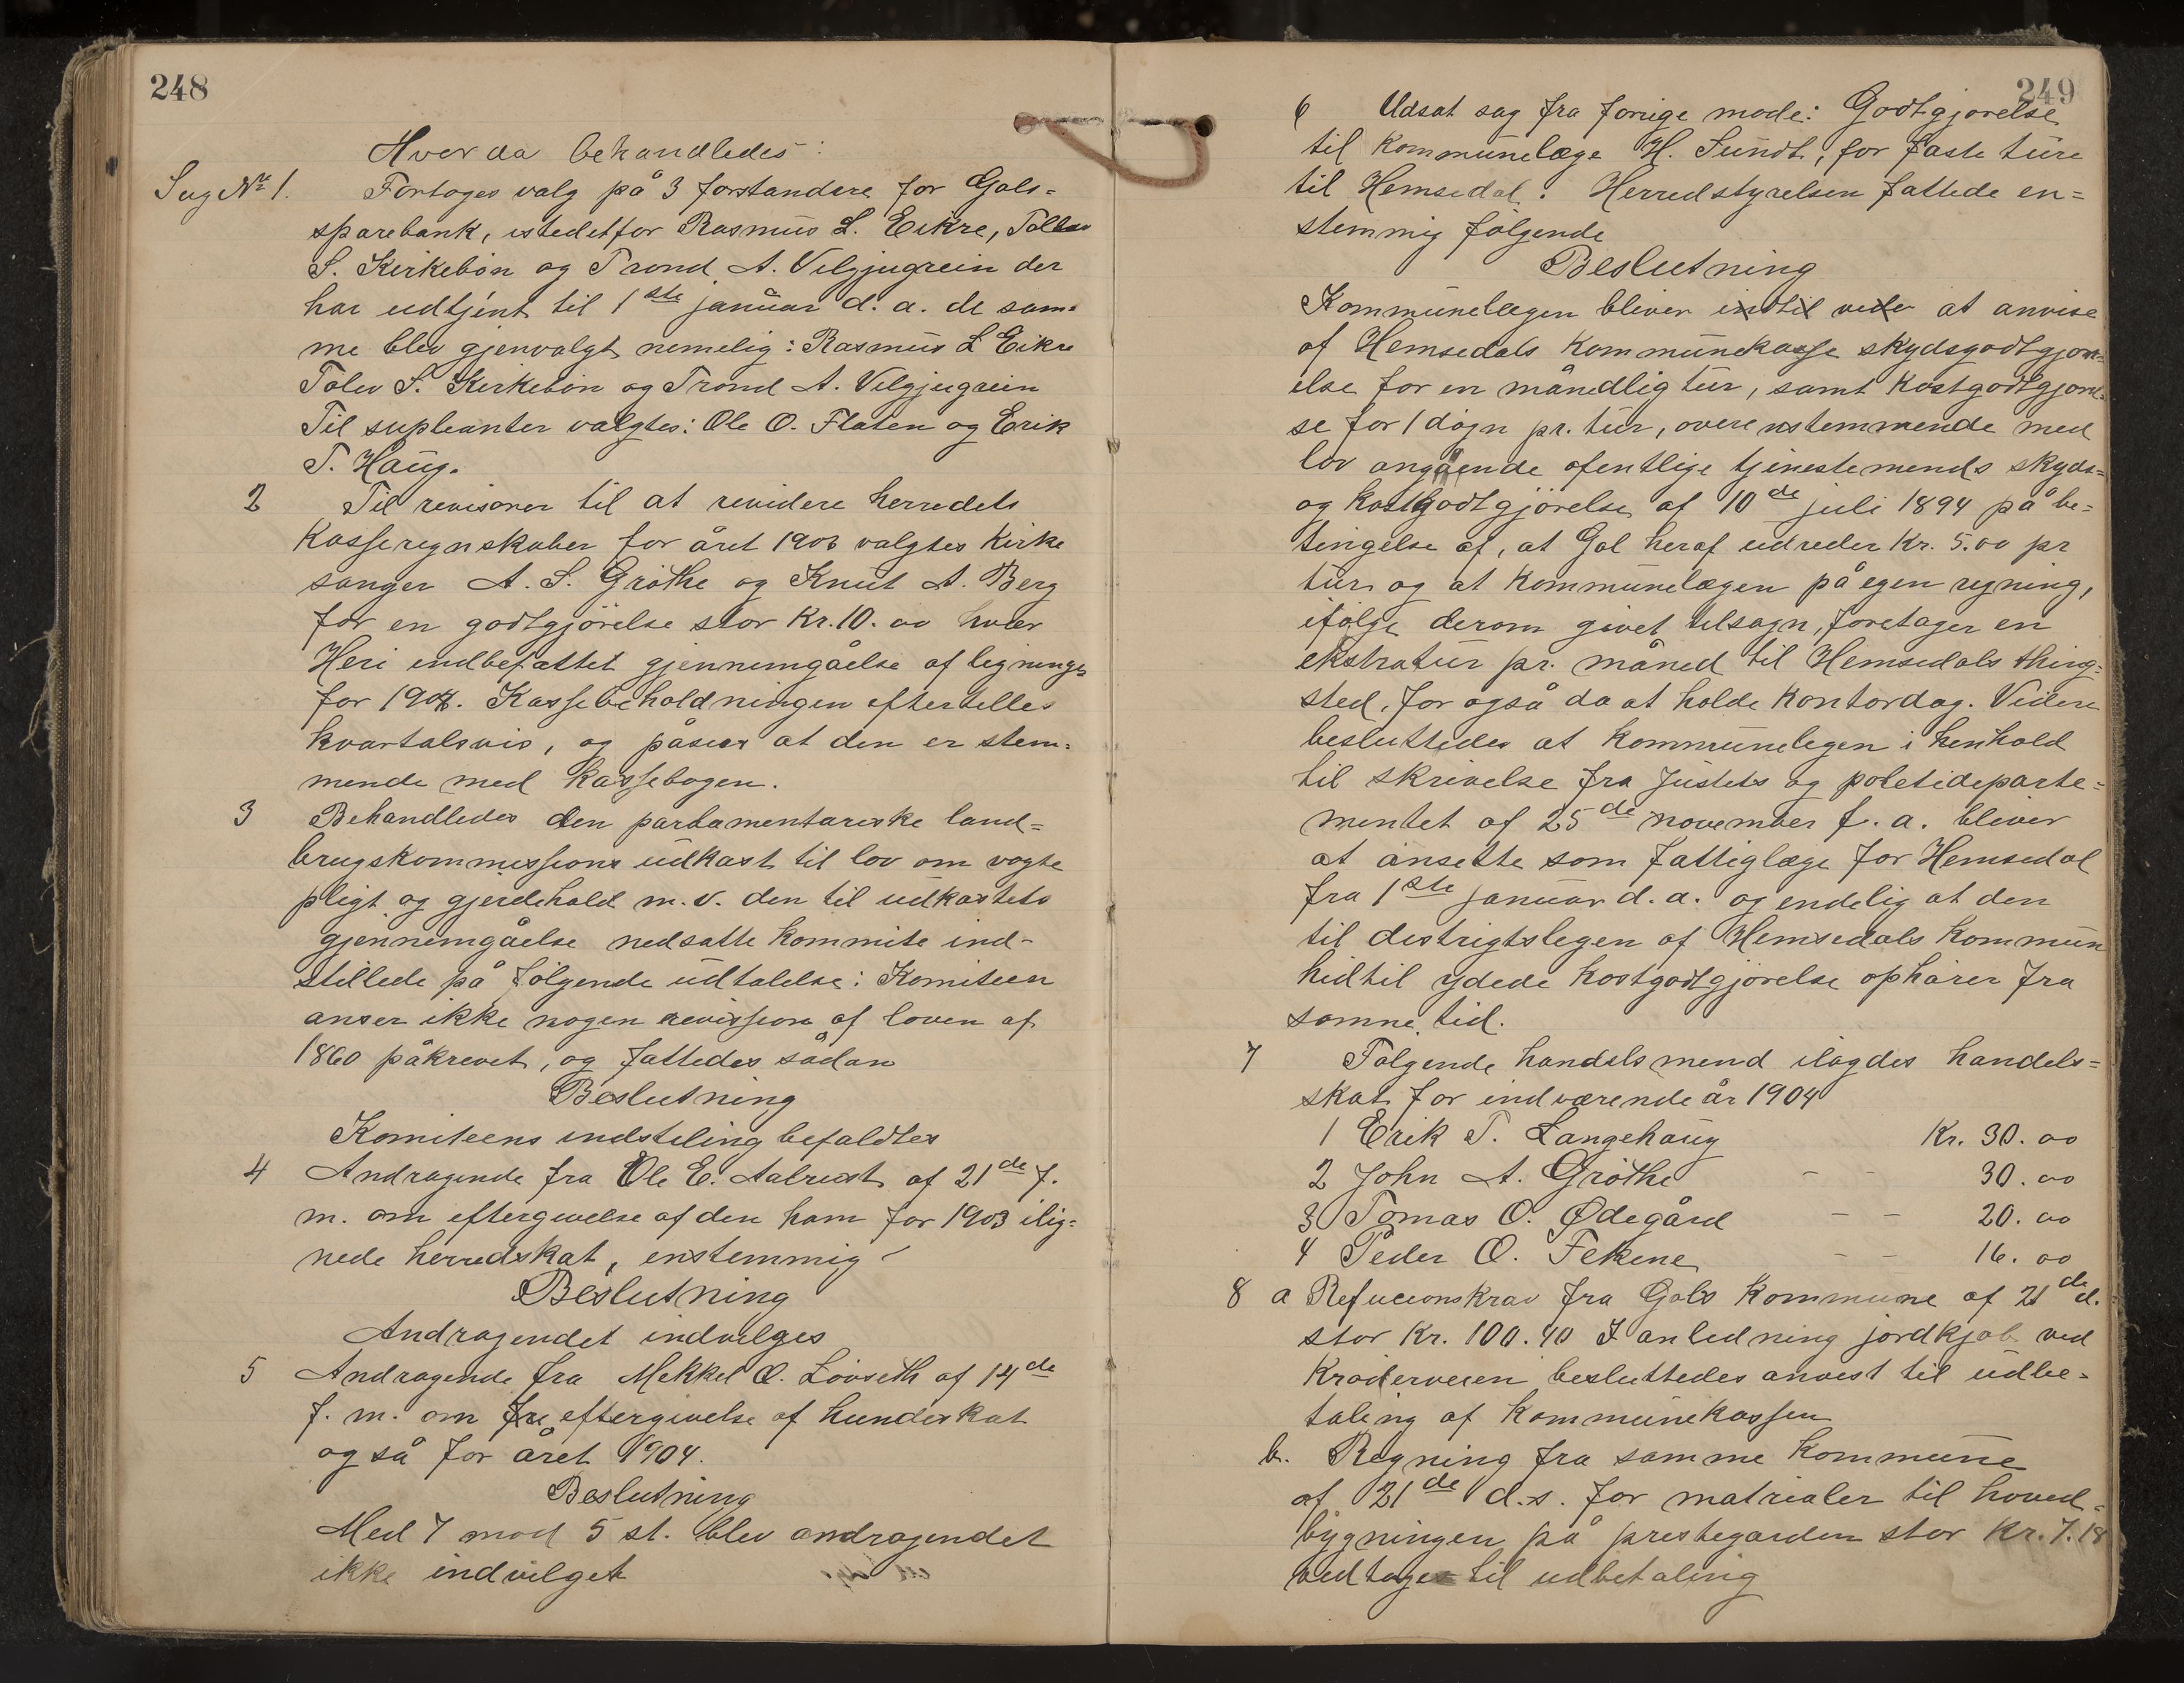 248
Hver da behandledes:
Sag No 1. Fortoges valg på 3 forstandere for Gols=
sparebank, istedetfor Rasmus L. Eikre, Tollev
S. Kirkebön og Trond A. Vilgjugrein der
har udtjent til 1ste januar d. a. de sam=
me blev gjenvalgt nemelig: Rasmus L Eikre
Tolev S. Kirkebön og Trond A. Vilgjugrein
Til supleanter valgtes: Ole O. Flaten og Erik
T. Haug.
2 Til revisorer til at revidere herredets
Kasseregnskaber for året 1903 valgtes Kirke
sanger A. S. Gröthe og Knut A. Berg
for en godtgjörelse stor Kr. 10.00 hver
Heri indbefattet gjennemgåelse af lignings=
for 1904. Kassebeholdningen eftertelles
kvartalsvis, og påsees at den er stem=
mende med kassebogen.
3 Behandledes den parlamentariske land=
brugskommissions udkast til lov om vogte
pligt og gjerdehold m. v. den til udkastets
gjennemgåelse nedsatte kommite ind-
stillede på følgende udtalelse: Komiteen
anser ikke nogen revission af loven af
1860 påkrevet, og fattedes sådan
Beslutning
Komiteens indstiling befaldtes
4 Andragende fra Ole E. Aalrust af 21de f.
m. om eftergivelse af den ham for 1903 ilig=
nede herredskat, enstemmig
Beslutning
Andragendet indvilges
5 Andragende fra Mekkel O. Lövseth af 14de
f. m. om fre eftergivelse af hundeskat
også for året 1904.
Beslutning
Med 7 mod 5 st. blev andragendet
ikke indvilget
249
6 Udsat sag fra forrige møde: Godtgjørelse
til Kommunelæge H. Sundt, for faste ture
til Hemsedal. Herredstyrelsen fattede en=
stemmig følgende
Beslutning
Kommunelægen bliver indtil videre at anvise
af Hemsedals Kommunekasse skydsgodtgjør=
else for en månedlig tur, samt Kostgodtgjørel=
se for 1 døgn pr. tur, overenstemmende med
lov angående ofentlige tjenestemends skyds=
og kostgodtgjörelse af 10de juli 1894 på be=
tingelse af, at Gol heraf udreder Kr. 5.00 pr
tur og at Kommunelægen på egen regning,
ifølge derom givet tilsagn, foretager en
ekstratur pr. måned til Hemsedals thing=
sted, for også da at holde Kontordag. Videre
besluttedes at Kommunelegen i henhold
til skrivelse fra Justets og poletideparte=
mentet af 25de november f. a. bliver
at ansette som fattiglæge for Hemsedal
fra 1ste januar d. a. og endelig at den
til distrigtslegen af Hemsedals Kommune
hidtil ydede Kostgodtgjørelse ophører fra
samme tid.
7 Følgende handelsmend ilagdes handels=
skat for indværende år 1904
1 Erik T. Langehaug Kr. 30.00
2 John A. Gröthe - - 30.00
3 Tomas O. Ødegård - - 20.00
4 Peder O. Fekene - - 16.00
8 a Refucionskrav fra Gols Kommune af 21de d.
stor Kr. 100.40 I anledning jordkjøb ved
Krøderveien besluttedes anvist til udbe=
taling af Kommunekassen
b. Regning fra samme Kommune
af 21de d.s. for matrialer til hoved=
bygningen på prestegarden stor Kr. 7.18
vedtages til udbetaling